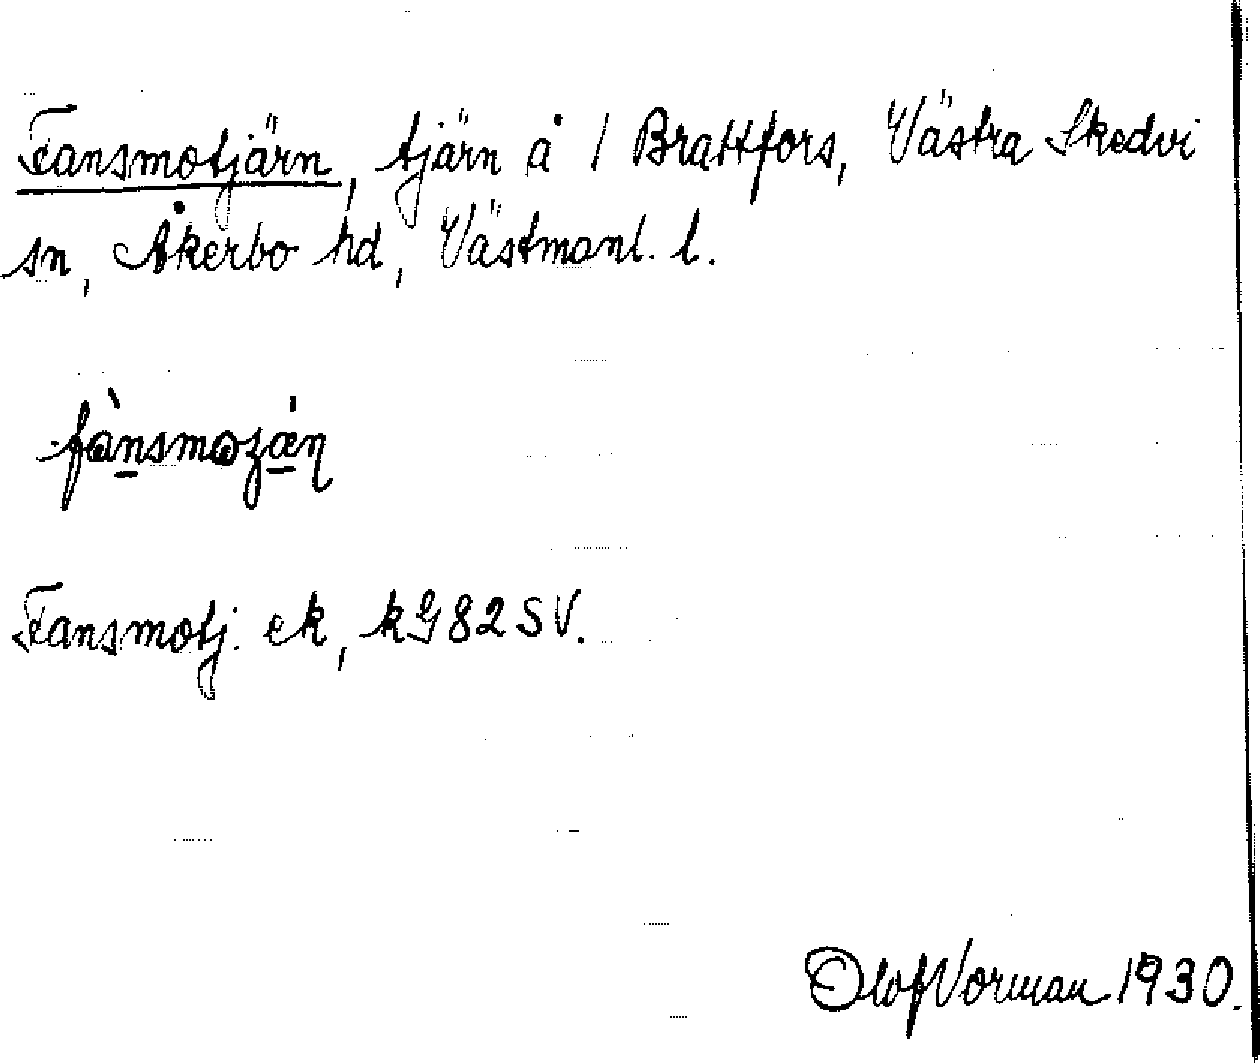 Fansmotjärn, tjärn å / Brattfors, Västra Skedvi
sn, Åkerbo hd, Västmanl. l.
Fansmotj. ek, kG82SV.
Olof Vorman 1930.